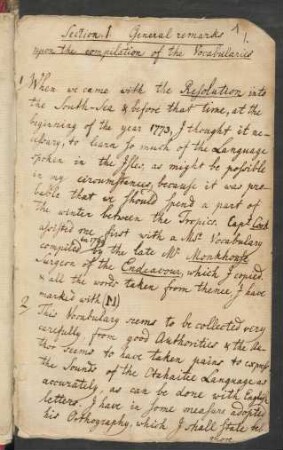 Section. 1. General remarks 1/.
upon the compilation of the Vocabularies
1 When we came with the Resolution into
the South-Sea & before that time, at the
beginning of the year 1773, I thought it ne-
cessary, to learn so much of the Language
spoken in the Isles, as might be possible
in my circumstances, because it was pro-
bable that we should spend a part of
the winter between the Tropics. Capt. Cook
assisted me first with a Mst. Vocabulary
in 1769
compiled by the late Mr. Monkhouse
Surgeon of the Endeavour, which I copied
& all the words taken from thence I have
marked with (M)
2 This Vocabulary seems to be collected very
carefully from good Authorities & the Au-
thor seems to have taken pains to express
the Sounds of the Otahaitee Language as
accurately, as can be done with English
letters. I have in some measure adopted
his Orthography, which I shall state bel